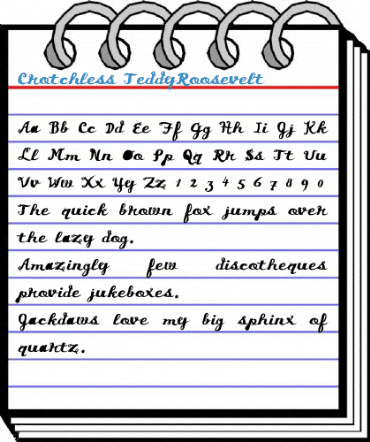 Crotchless TeddyRoosevelt
Aa Bb Cc Dd Ee Ff Gg Hh Ii Jj Kk
Ll Mm Nn Oo Pp Qq Rr Ss Tt Uu
Vv Ww Xx Yy Zz 1 2 3 4 5 6 7 8 9 0
The quick brown fox jumps over
the lazy dog.
Amazingly few discotheques
provide jukeboxes.
Jackdaws love my big sphinx of
quartz.